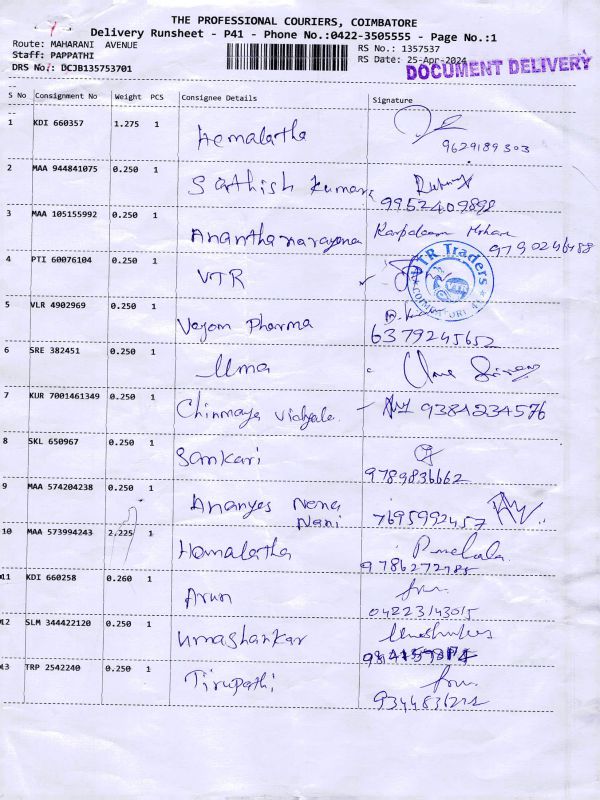 THE PROFESSIONAL COURIERS, COIMBATORE
Delivery Runsheet - P41 - Phone No.:0422-3505555 - Page No.:1
Route: MAHARANI AVENUE
Staff: PAPPATHI
DRS No.: DCJB135753701
RS No.: 1357537
RS Date: 25-Apr-2024
DOCUMENT DELIVERY
S No Consignment No Weight PCS Consignee Details Signature
1 KDI 660357 1.275 1 Hemalatha
9629189303
2 MAA 944841075 0.250 1 Sathish Kumar
9952409898
3 MAA 105155992 0.250 1 Ananthanarayana
Mohan
4 PTI 60076104 0.250 1 VTR
VTR Traders
VTR
5 VLR 4902969 0.250 1 Vayom Pharma
6379245652
6 SRE 382451 0.250 1 Uma
7 KUR 7001461349 0.250 1 Chinmaya Vidyala. 9384234576
8 SKL 650967 0.250 1 Sankari
9789836662
9 MAA 574204238 0.250 1 Ananyas Nana
Nani 7695992457
10 MAA 573994243 2.225 1 Hemalatha
11 KDI 660258 0.260 1 Arun
04223143015
12 SLM 344422120 0.250 1 Umashankar
13 TRP 2542240 0.250 1 Tirupathi